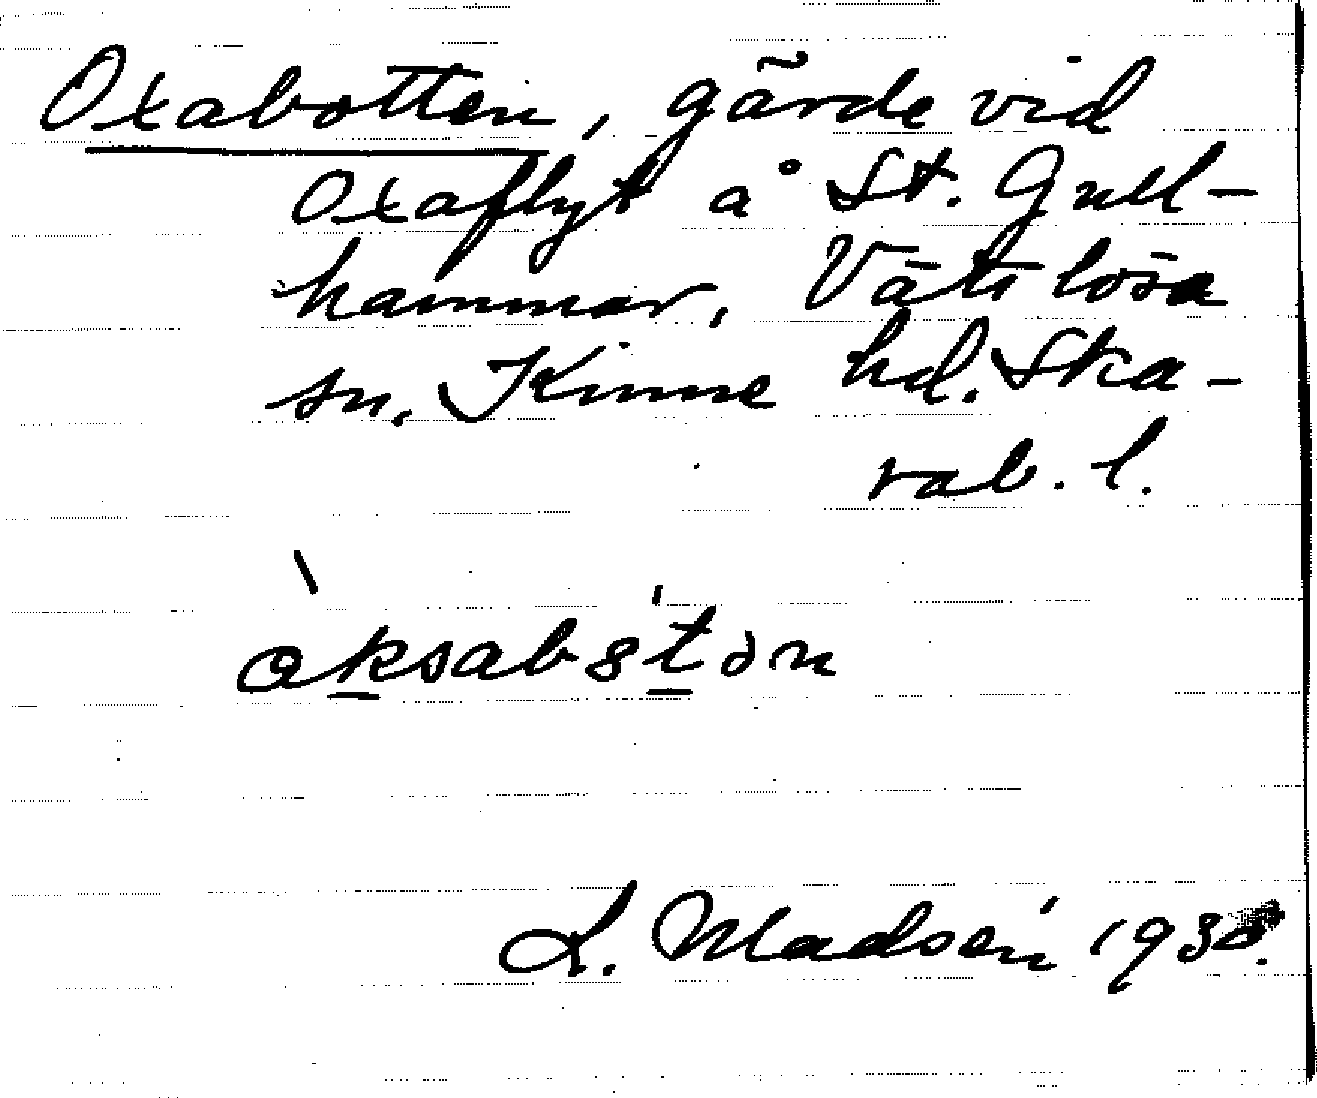 Oxabotten, gärde vid
Oxaflyt å St. Gull-
hammar, Vättlösa
sn. Kinne hd. Ska-
rab. l.
L. Madsén